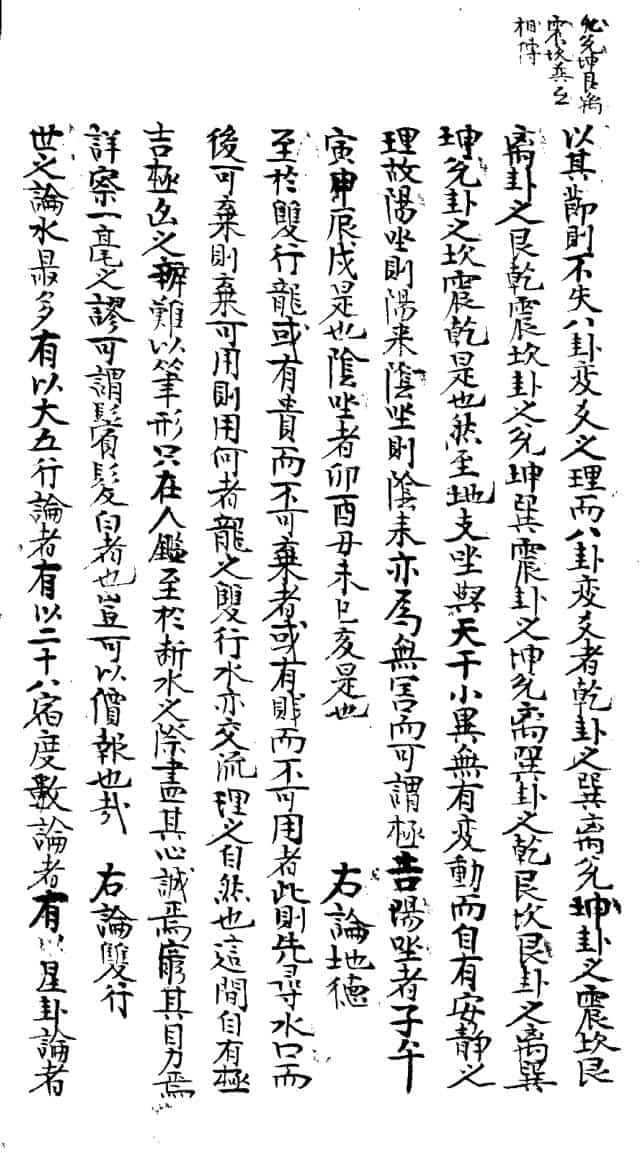 兊坤艮离
震坎巽之
相傳
以其節則不失八卦变爻之理而八卦变爻者乾卦之巽离兊坤卦之震坎艮
离卦之艮乾震坎卦之兊坤巽震卦之坤兊离巽卦之乾艮坎艮卦之离巽
坤兊卦之坎震乾是也然至地支坐與天干小異無有変動而自有安靜之
理故陽坐則陽来陰坐則陰来亦為無害而可謂極吉陽坐者子午
寅申辰戌是也陰坐者卯酉丑未巳亥是也 右論地德
至於雙行龍或有貴而不可棄者或有賎而不可用者此則先尋水口而
後可棄則棄可用則用何者龍之雙行水亦交流理之自然也這間自有極
吉極凶之辨難以筆形只在人鑑至於斷水之際盡其心誠焉窮其目力焉
詳察一毫之謬可謂鬂髮白者也豈可以償報也哉 右論雙行
世之論水最多有以大五行論者有以二十八宿度數論者有以星卦論者